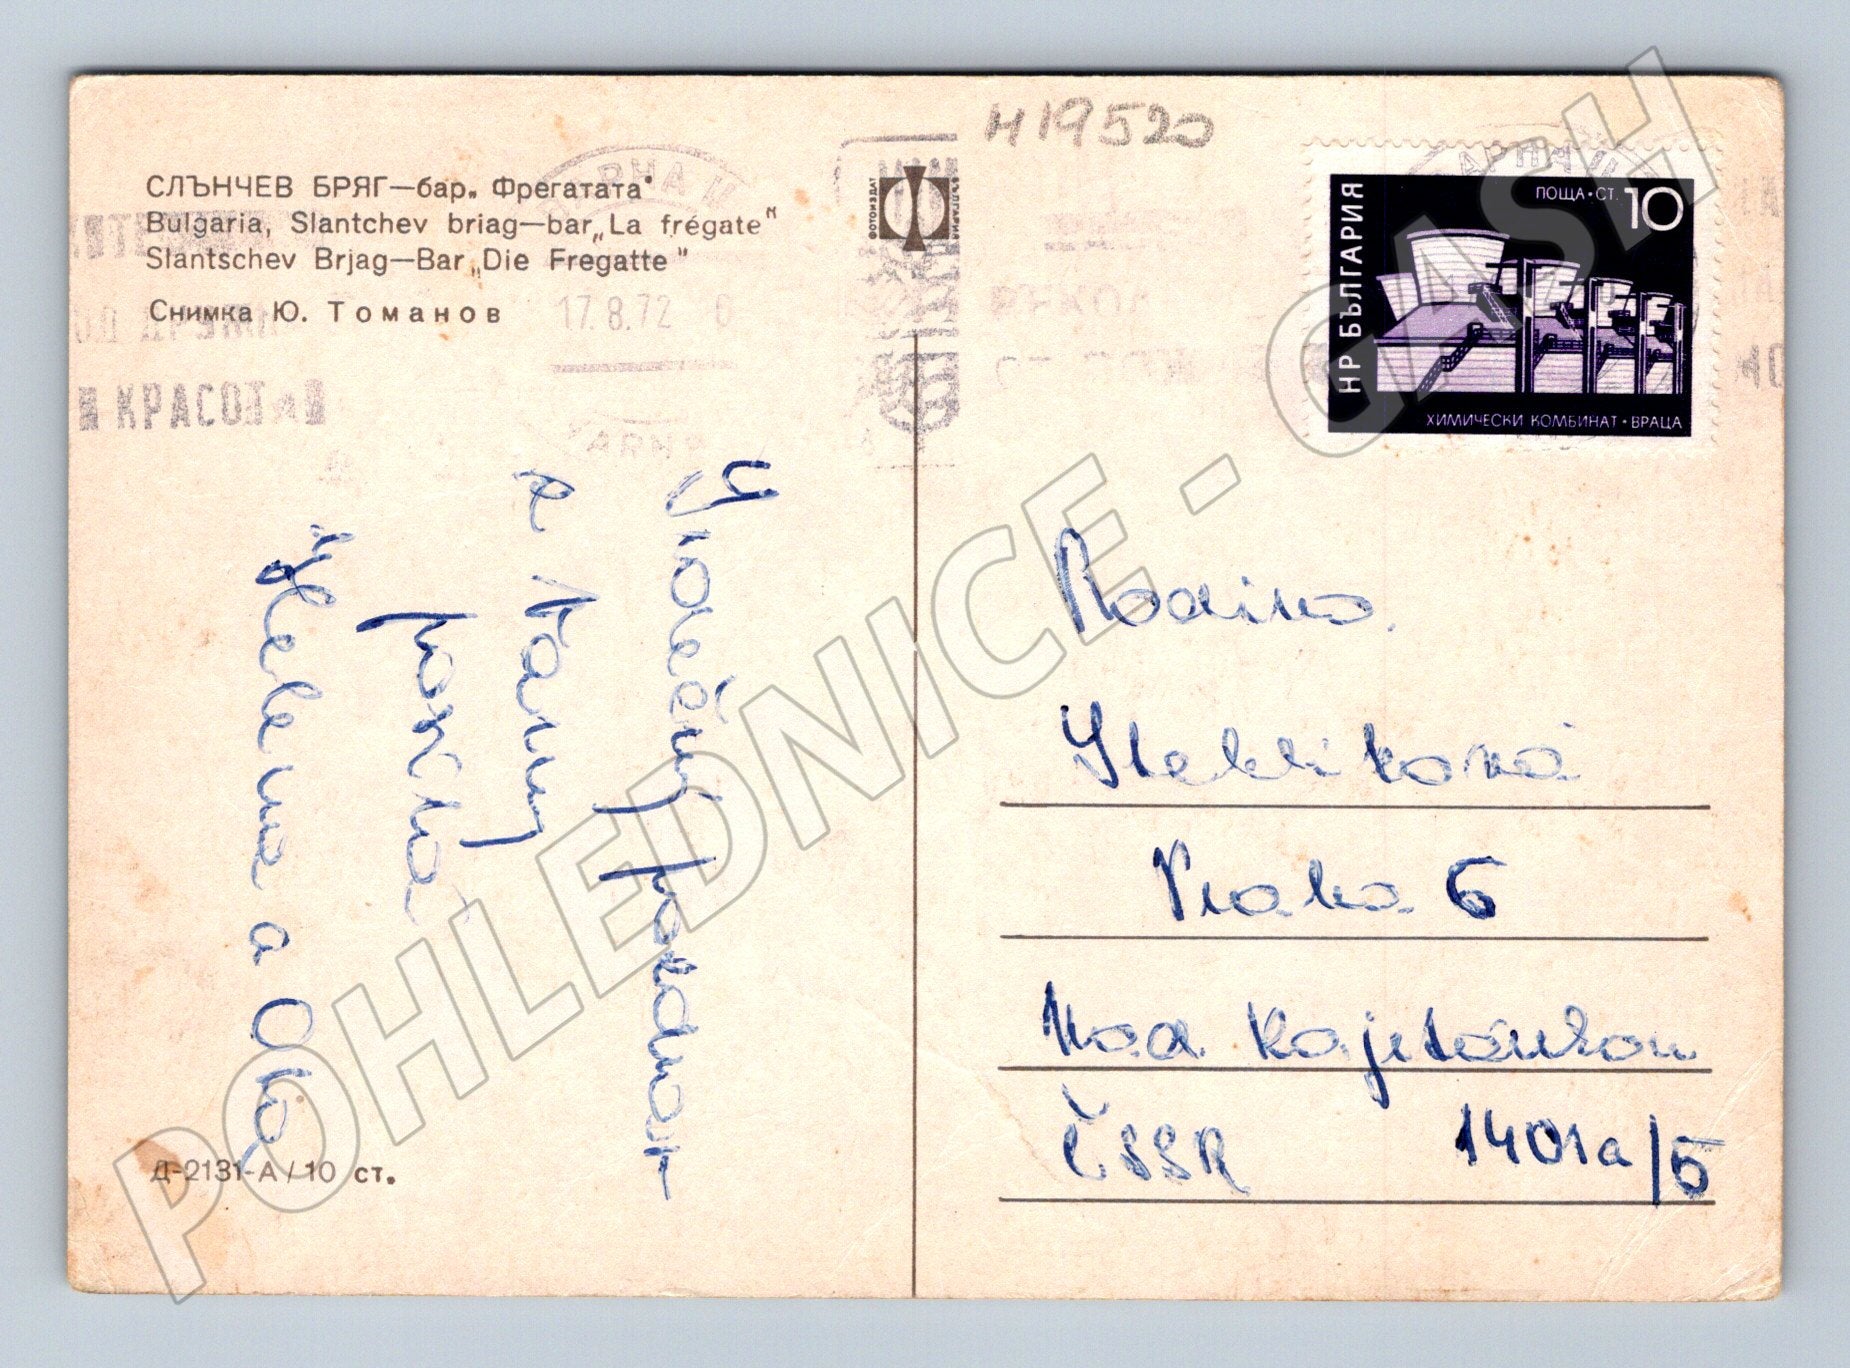 H19520
СЛЪНЧЕВ БРЯГ—бар„ Фрегатата"
Bulgaria, Slantchev briag—bar„La frégate"
Slantschev Brjag—Bar„Die Fregatte"
Снимка Ю. Томанов
ФОТОИЗДАТ
БЪЛГАРИЯ
17.8.72
И КРАСОТА
ВАРНА
НР БЪЛГАРИЯ
ПОЩА·СТ. 10
ХИМИЧЕСКИ КОМБИНАТ·ВРАЦА
Srdečný pozdrav
z Varny
Helena a Ota
Rodina
Steklíková
Praha 6
Nad Kajetánkou
ČSSR 1401a/5
Д-2131-А/10 ст.
POHLEDNICE - GASH